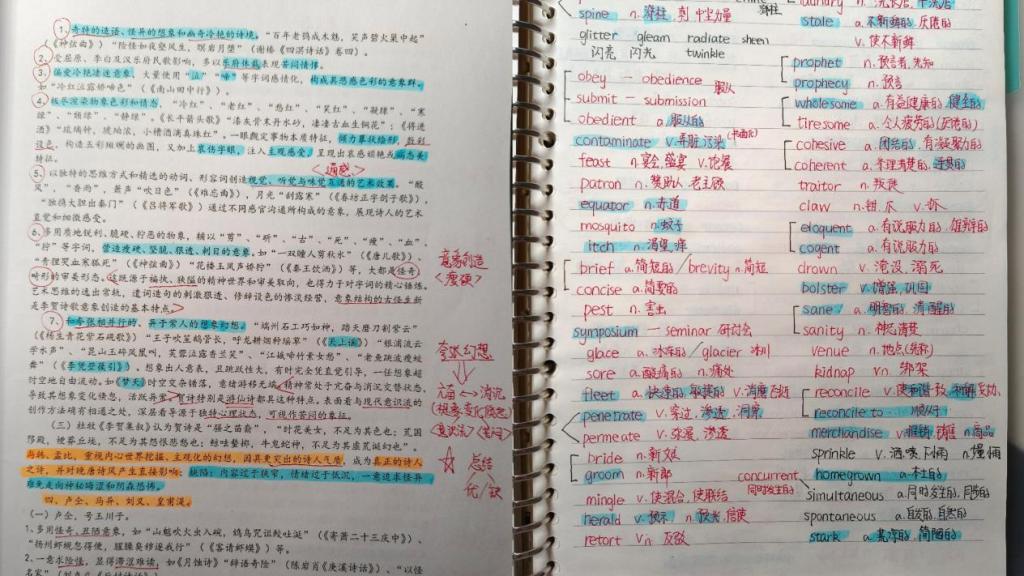 1、奇特的造语、怪异的想象和幽奇冷艳的诗境。"百年老鸮成木魅，笑声碧火巢中起"
（《神弦曲》）"险怪如夜壑风生，暝岩月堕"（谢榛《四溟诗话》卷四）。
2、受屈原、李白及汉乐府民歌影响，多以乐府体裁表现苦闷情怀。
3、偏爱冷艳凄迷意象，大量使用"泣""啼"等字词感情化，构成其悲感色彩的意象群。
如"冷红泣露娇啼色"（《南山田中行》）。
4、极尽渲染物象色彩和情态，"冷红"、"老红"、"愁红"、"笑红"，"凝绿"、"寒
绿"、"颓绿"、"静绿"。《长平箭头歌》"漆灰骨末丹水砂，凄凄古血生铜花"；《将进
酒》"琉璃钟，琥珀浓，小槽酒滴真珠红"。一眼觑定事物本质特征，倾力摹状绘形，敷彩
设色，构造五彩细斓的画图，又加上哀伤字眼，注入主观感受，呈现出哀感顽艳或病态美
特征。
<通感>
5、以独特的思维方式和精选的动词、形容词创造视觉、听觉与味觉互通的艺术效果。"酸
风"、"香雨"，箫声"吹日色"（《难忘曲》），月光"刮露寒"（《春坊正字剑子歌》），
"独携大胆出秦门"（《吕将军歌》）通过不同感官沟通所构成的意象，展现诗人的艺术
直觉和细微感受。
6、多用质地锐利、脆硬、狞恶的物象，辅以"剪"、"斫"、"古"、"死"、"瘦"、"血"、
"狞"等字词，营造瘦硬、坚脆、狠透、刺目的意象。如"一双瞳人剪秋水"（《唐儿歌》）、
"青狸哭血寒狐死"（《神弦曲》）"花楼玉凤声娇狞"（《秦王饮酒》）等，大都是怪奇
畸形的审美形态。这既源于褊狭、狭隘的精神世界和审美取向，也得力于对字词的精心锤炼。
艺术思维的逸出常轨，遣词造句的刺激狠透、修辞设色的惨淡经营，意象结构的去怪生新
是李贺诗歌意象创造的基本特点。
意象创造
<瘦硬>
7、和夸张相并行的、异于常人的想象幻想。"端州石工巧如神，踏天磨刀割紫云"
（《杨生青花紫石砚歌》）"王子吹笙鹅管长，呼龙耕烟种瑶草"（《天上谣》）"银浦流云
学水声"、"昆山玉碎凤凰叫，芙蓉泣露香兰笑"、"江娥啼竹素女愁"、"老鱼跳波瘦蛟
舞"（《李凭箜篌引》）。想象出人意表，且跳跃性大，有时完全凭直觉引导，一任想象超
时空地自由流动。如《梦天》时空交杂错落，意绪游移无端。精神常处于亢奋与消沉交替状态
导致其想象变化倏忽，活跃异常。贺诗特别是游仙诗都具这种特点，表面看与现代意识流的
创作方法确有相通之处，深层看导源于独特心理状态，可视作苦闷的象征。
夸张幻想
亢奋 ↔ 消沉
(想象变化倏忽)
(意识流)(苦闷)
（三）杜牧《李贺集叙》认为贺诗是"骚之苗裔"，"时花美女，不足为其色也；荒国
陊殿，梗莽丘垅，不足为其怨恨悲愁也；鲸呿鳌掷，牛鬼蛇神，不足为其虚荒诞幻也"。
与韩、孟比，重视内心世界挖掘、主观化的幻想，因具更突出的诗人气质，成为真正的诗人
之诗，并对晚唐诗风产生直接影响；缺陷：内容过于狭窄，情绪过于低沉，一意追求怪异，
难免走向神秘晦涩和阴森恐怖。
☆ 总结
优/缺
四、卢仝、马异、刘叉、皇甫湜。
（一）卢仝，号玉川子。
1、多用怪奇、丑陋意象，如"山魈吹火虫入碗，鸩鸟咒诅鲛吐涎"（《寄萧二十三庆中》）、
"扬州虾蚬忽得便，腥臊臭秽逐我行"（《客请虾蟆》）等。
2、一意求险怪，显得滞涩难读；如《月蚀诗》"辞语奇险"（陈岩肖《庚溪诗话》）、"以怪
spine n. 脊柱, 刺 中坚力量
glitter gleam radiate sheen
闪亮 闪光 twinkle
obey — obedience
服从
submit — submission
obedient a. 服从的
contaminate v. 弄脏, 污染
feast n. 宴会, 盛宴 v. 饱餐
patron n. 赞助人, 老主顾
equator n. 赤道
mosquito n. 蚊子
itch n. 渴望, 痒
brief a. 简短的 / brevity n. 简短
concise a. 简要的
pest n. 害虫
symposium — seminar 研讨会
glace a. 冰冻的 / glacier 冰川
sore a. 酸痛的 n. 痛处
fleet a. 快速的, 敏捷的 v. 消磨
penetrate v. 穿过, 渗透, 洞察
permeate v. 弥漫, 渗透
bride n. 新娘
groom n. 新郎
mingle v. 使混合, 使联结
herald v. 预示 n. 预兆, 信使
retort v n. 反驳
laundry n. 洗衣店, 干洗店
stale a. 不新鲜的, 厌倦的
v. 使不新鲜
prophet n. 预言者, 先知
prophecy n. 预言
wholesome a. 有益健康的, 健全的
tiresome a. 令人疲劳的 (厌倦的)
cohesive a. 团结的, 有凝聚力的
coherent a. 条理清楚的, 连贯的
traitor n. 叛徒
claw n. 钳, 爪 v. 抓
eloquent a. 有说服力的, 雄辩的
cogent a. 有说服力的
drown v. 淹没, 溺死
bolster v. 增强, 巩固
sane a. 明智的, 清醒的
sanity n. 神志清楚
venue n. 地点(统称)
kidnap vn. 绑架
reconcile v. 使和谐一致, 和解
reconcile to … 顺从于
merchandise v. 推销, 销售 n. 商品
Sprinkle v. 洒, 喷, 下小雨 n. 撞倒
homegrown a. 本土的
concurrent
同时发生的
simultaneous a. 同时发生的, 同步的
spontaneous a. 自发的, 自然的
stark a. 荒凉的, 简陋的